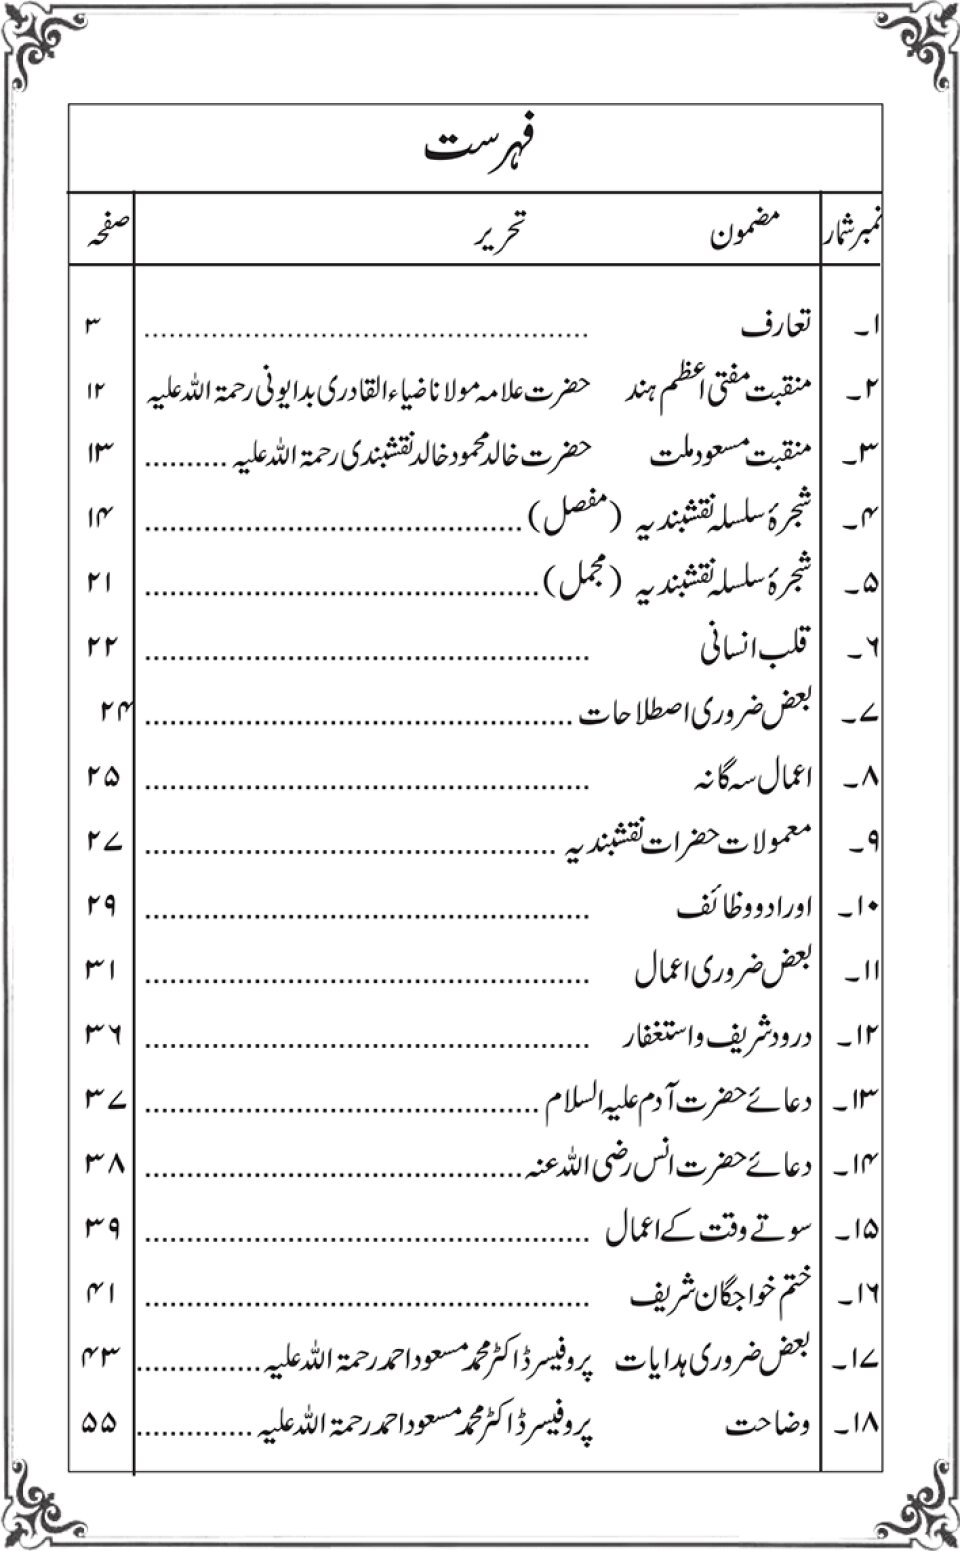 فہرست
نمبر شمار مضمون تحریر صفحہ
۱۔ تعارف ........................................ ۳
۲۔ منقبت مفتی اعظم ہند حضرت علامہ مولانا ضیاء القادری بدایونی رحمۃ اللہ علیہ ۱۲
۳۔ منقبت مسعود ملت حضرت خالد محمود خالد نقشبندی رحمۃ اللہ علیہ .......... ۱۳
۴۔ شجرۂ سلسلہ نقشبندیہ (مفصل) ........................................ ۱۴
۵۔ شجرۂ سلسلہ نقشبندیہ (مجمل) ........................................ ۲۱
۶۔ قلب انسانی ........................................ ۲۲
۷۔ بعض ضروری اصطلاحات ........................................ ۲۴
۸۔ اعمال سہ گانہ ........................................ ۲۵
۹۔ معمولات حضرات نقشبندیہ ........................................ ۲۷
۱۰۔ اوراد و وظائف ........................................ ۲۹
۱۱۔ بعض ضروری اعمال ........................................ ۳۱
۱۲۔ درود شریف و استغفار ........................................ ۳۶
۱۳۔ دعائے حضرت آدم علیہ السلام ........................................ ۳۷
۱۴۔ دعائے حضرت انس رضی اللہ عنہ ........................................ ۳۸
۱۵۔ سوتے وقت کے اعمال ........................................ ۳۹
۱۶۔ ختم خواجگان شریف ........................................ ۴۱
۱۷۔ بعض ضروری ہدایات پروفیسر ڈاکٹر محمد مسعود احمد رحمۃ اللہ علیہ .............. ۴۳
۱۸۔ وضاحت پروفیسر ڈاکٹر محمد مسعود احمد رحمۃ اللہ علیہ .............. ۵۵